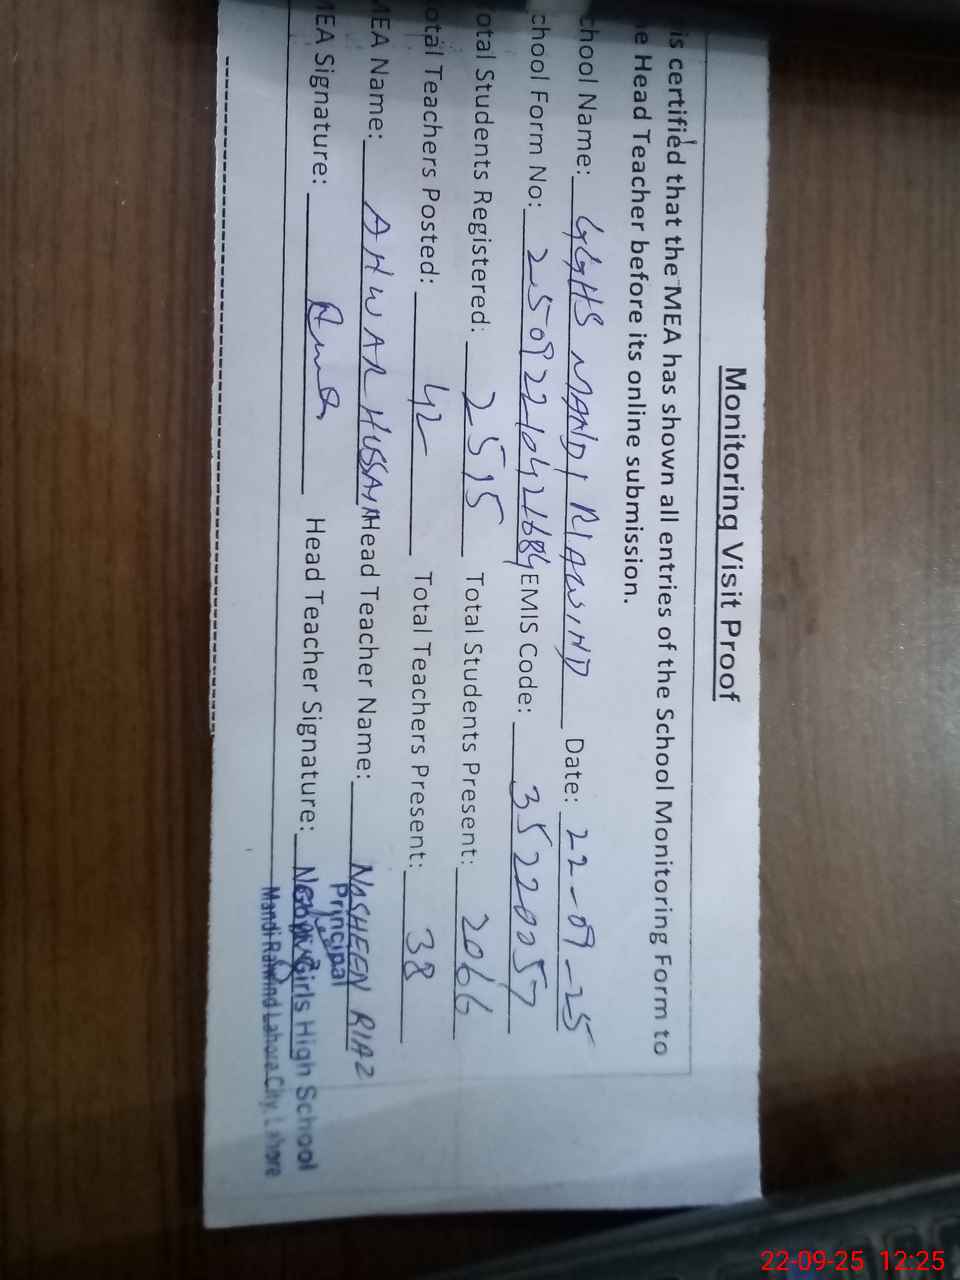 Monitoring Visit Proof
is certified that the MEA has shown all entries of the School Monitoring Form to
e Head Teacher before its online submission.
chool Name: GGHS MANDI RIAWIND Date: 22-09-25
chool Form No: 25092210421684 EMIS Code: 35220057
otal Students Registered: 2515 Total Students Present: 2066
otal Teachers Posted: 42 Total Teachers Present: 38
MEA Name: ANWAR HUSSAIN Head Teacher Name: NOSHEEN RIAZ
MEA Signature: Head Teacher Signature:
Principal
Girls High School
Mandi Raiwind Lahore City, Lahore
22-09-25 12:25